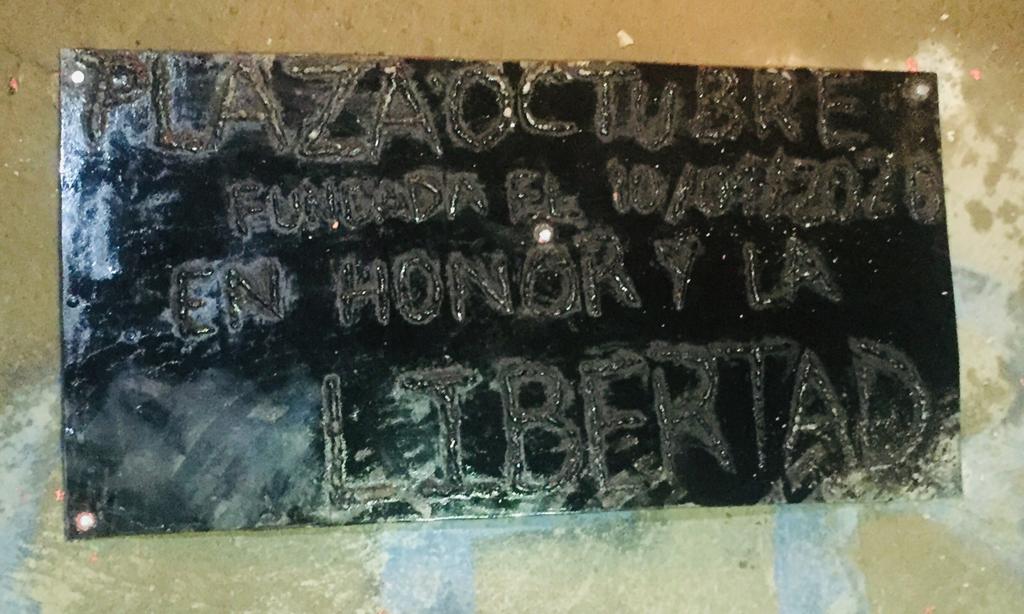 PLAZA OCTUBRE
FUNDADA EL 10/09/2020
EN HONOR Y LA
LIBERTAD